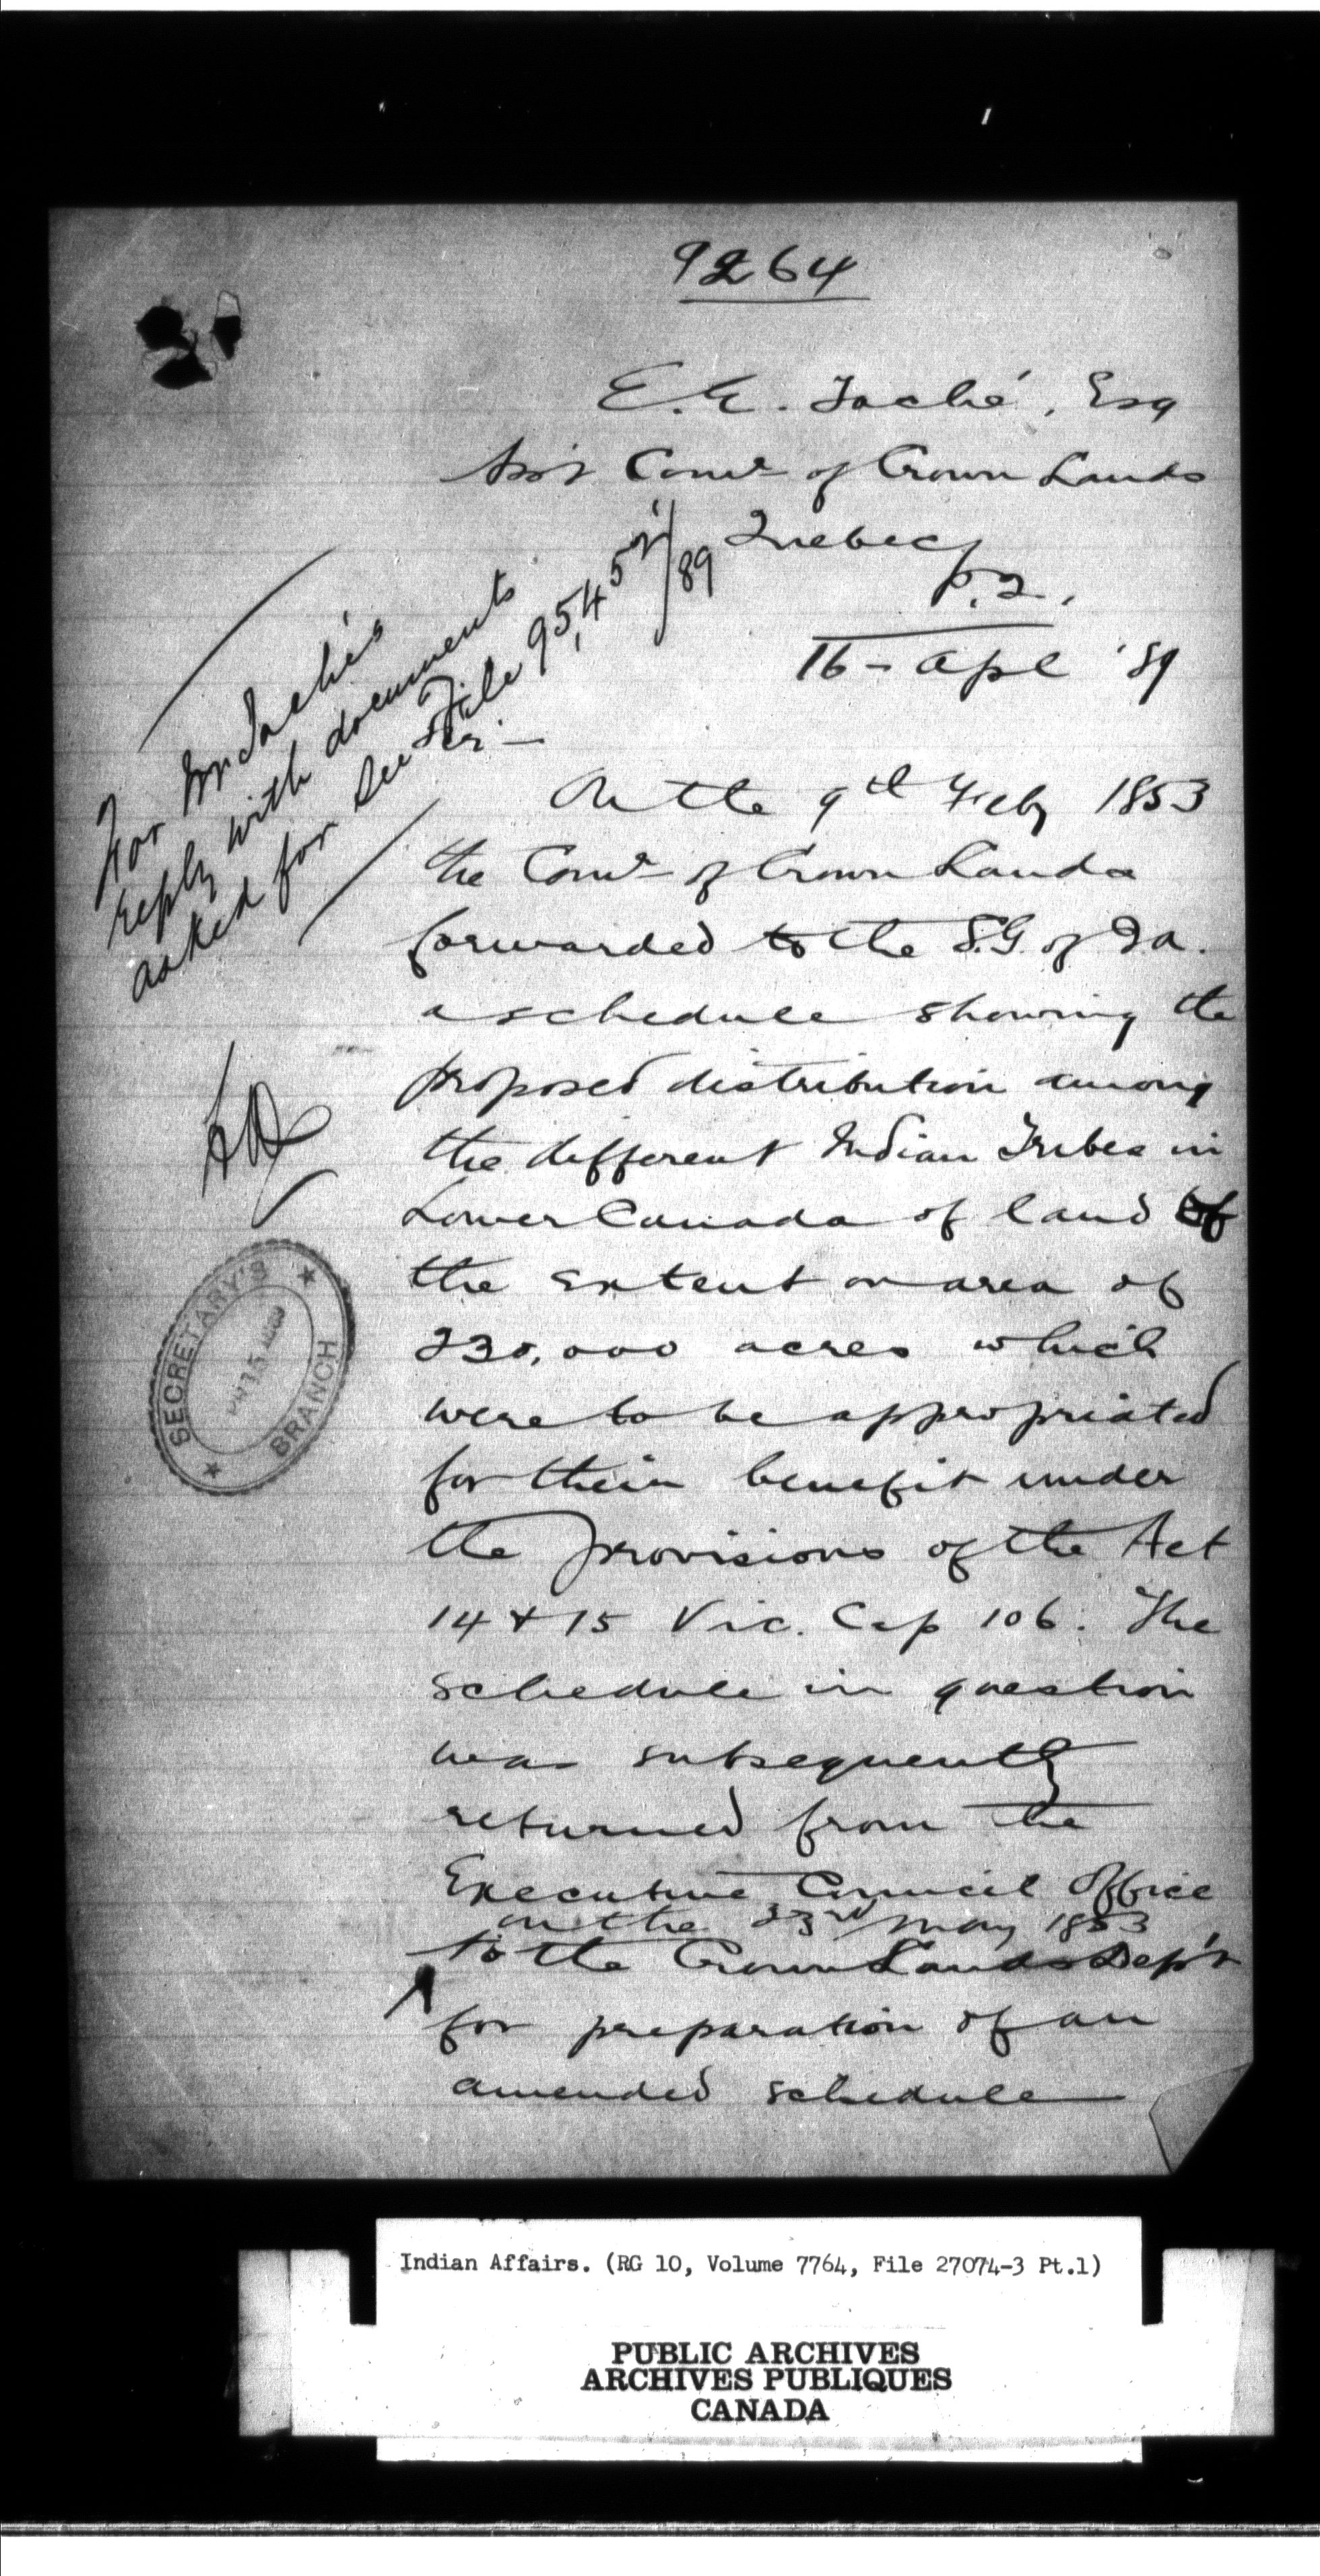 9264
E. E. Taché, Esq
Ass't Comr of Crown Lands
Quebec
P.Q.
16 - Apl '89
For Mr Taché's
reply with documents
asked for see File 95,452/89
On the 9th Feby 1853
the Comr of Crown Lands
forwarded to the S.G. of I.a.
a schedule showing the
proposed distribution among
the different Indian Tribes in
Lower Canada of land of
the extent or area of
230,000 acres which
were to be appropriated
for their benefit under
the provisions of the Act
14 & 15 Vic. Cap 106. The
schedule in question
was subsequently
returned from the
Executive Council Office
on the 23rd May 1853
to the Crown Lands Dep't
for preparation of an
amended schedule
SECRETARY'S
BRANCH
Indian Affairs. (RG 10, Volume 7764, File 27074-3 Pt.1)
PUBLIC ARCHIVES
ARCHIVES PUBLIQUES
CANADA